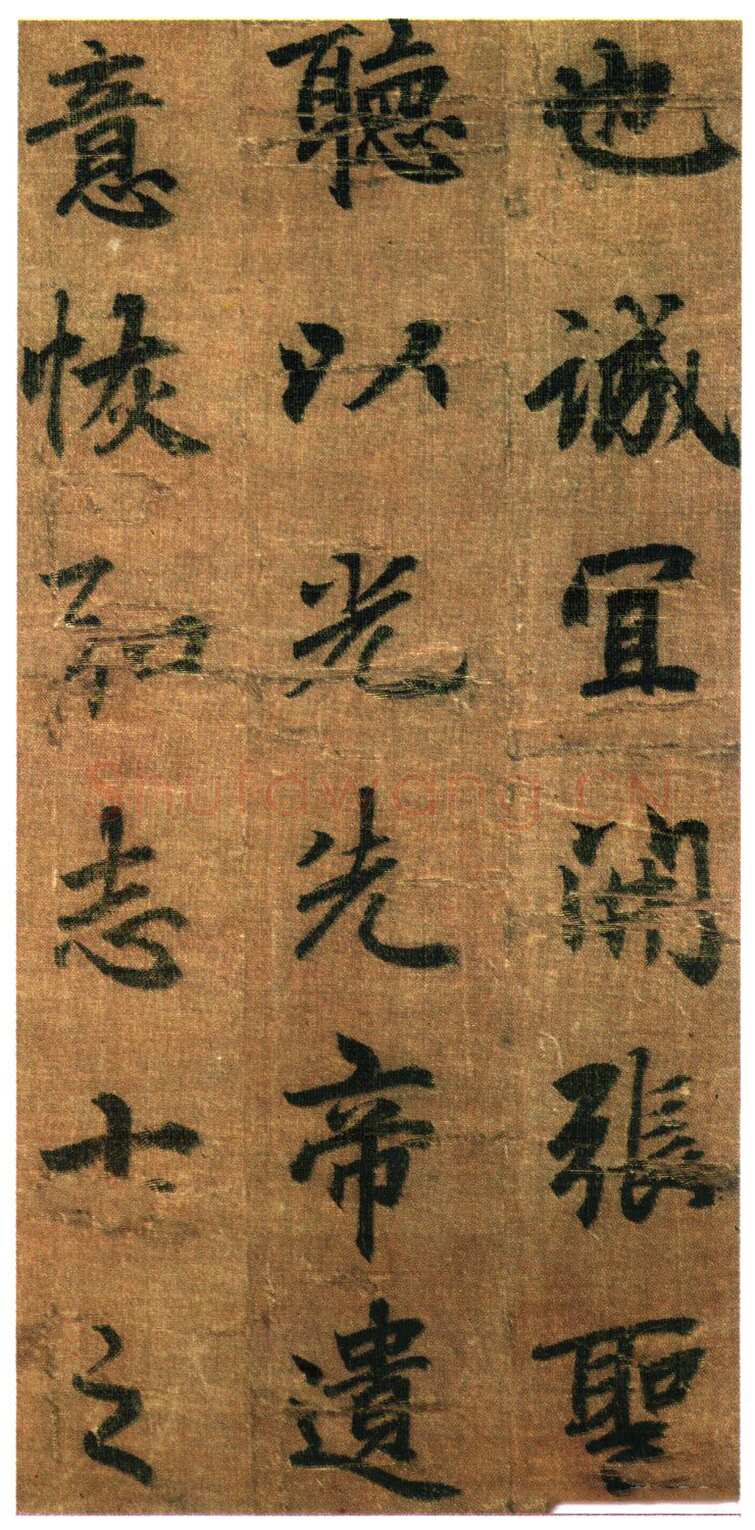 也誠宜開張聖
聽以光先帝遺
意恢弘志士之
Shufawang.CN